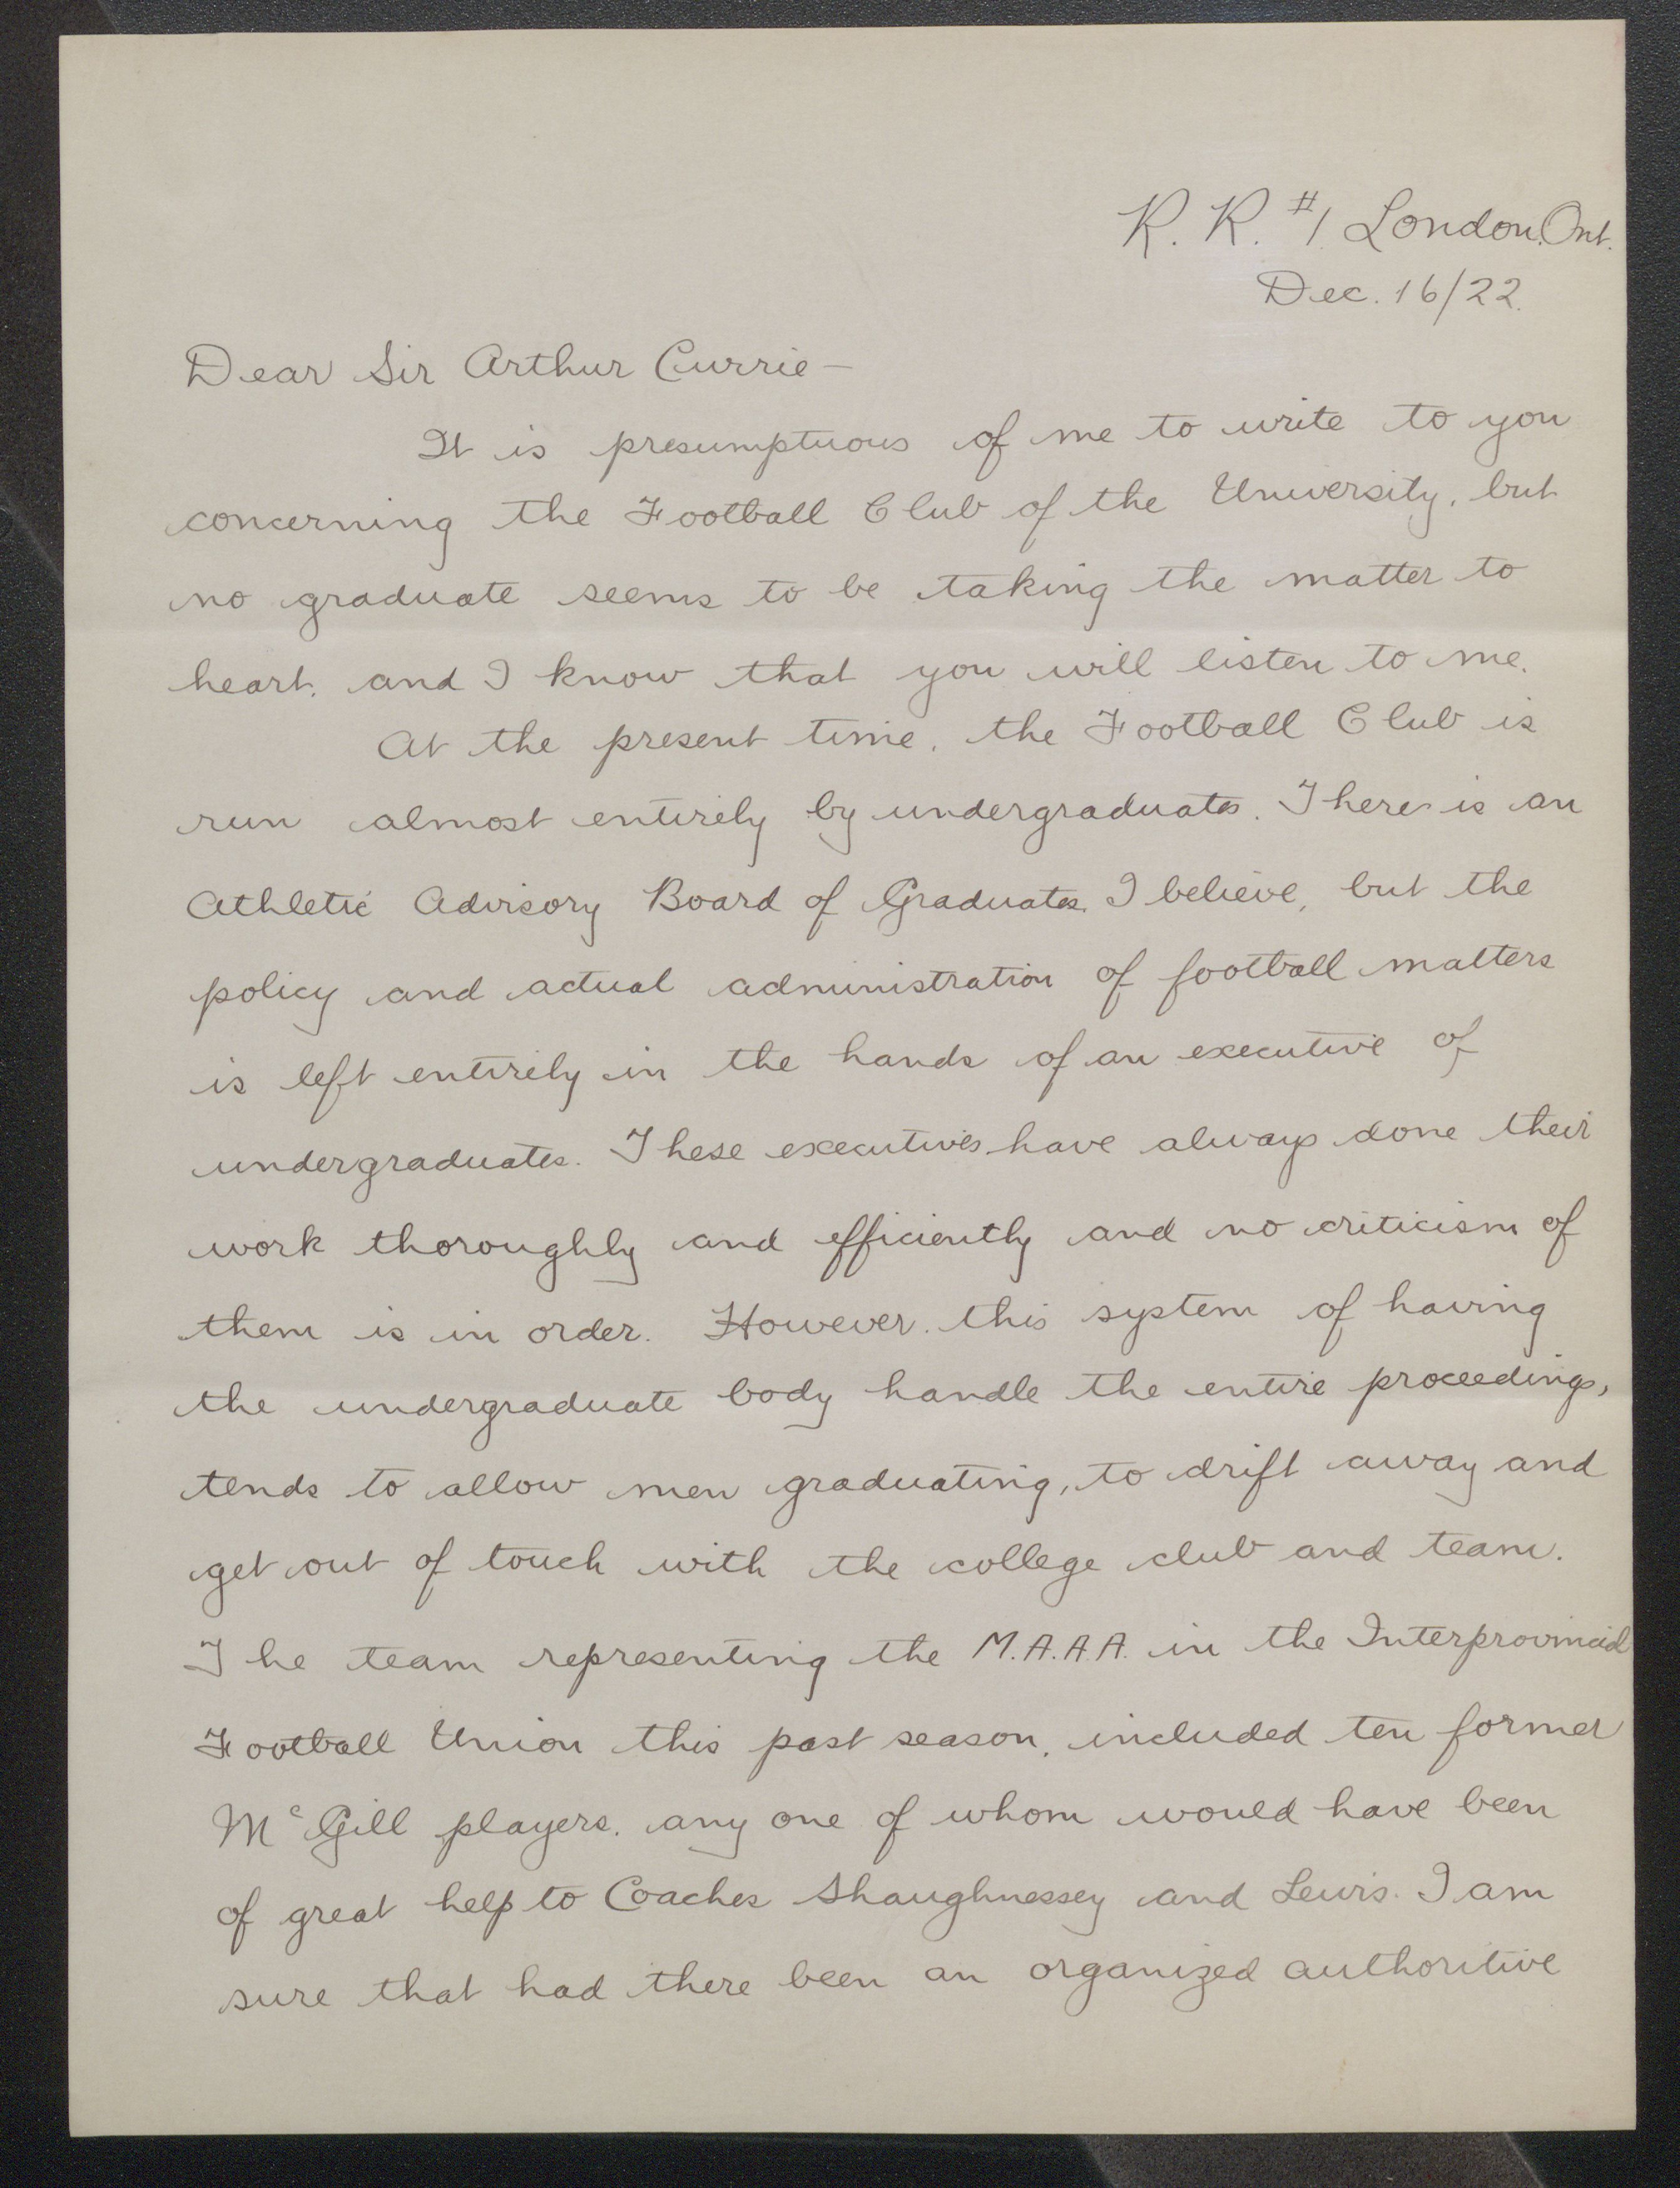 R. R. #1. London. Ont.
Dec. 16/22.
Dear Sir Arthur Currie -
It is presumptuous of me to write to you
concerning the Football Club of the University, but
no graduate seems to be taking the matter to
heart, and I know that you will listen to me.
At the present time, the Football Club is
run almost entirely by undergraduates. There is an
Athletic Advisory Board of Graduates, I believe, but the
policy and actual administration of football matters
is left entirely in the hands of an executive of
undergraduates. These executives have always done their
work thoroughly and efficiently and no criticism of
them is in order. However, this system of having
the undergraduate body handle the entire proceedings,
tends to allow men graduating, to drift away and
get out of touch with the college club and team.
The team representing the M.A.A.A. in the Interprovincial
Football Union this past season, included ten former
McGill players, any one of whom would have been
of great help to Coaches Shaughnessey and Lewis. I am
sure that had there been an organized authoritive